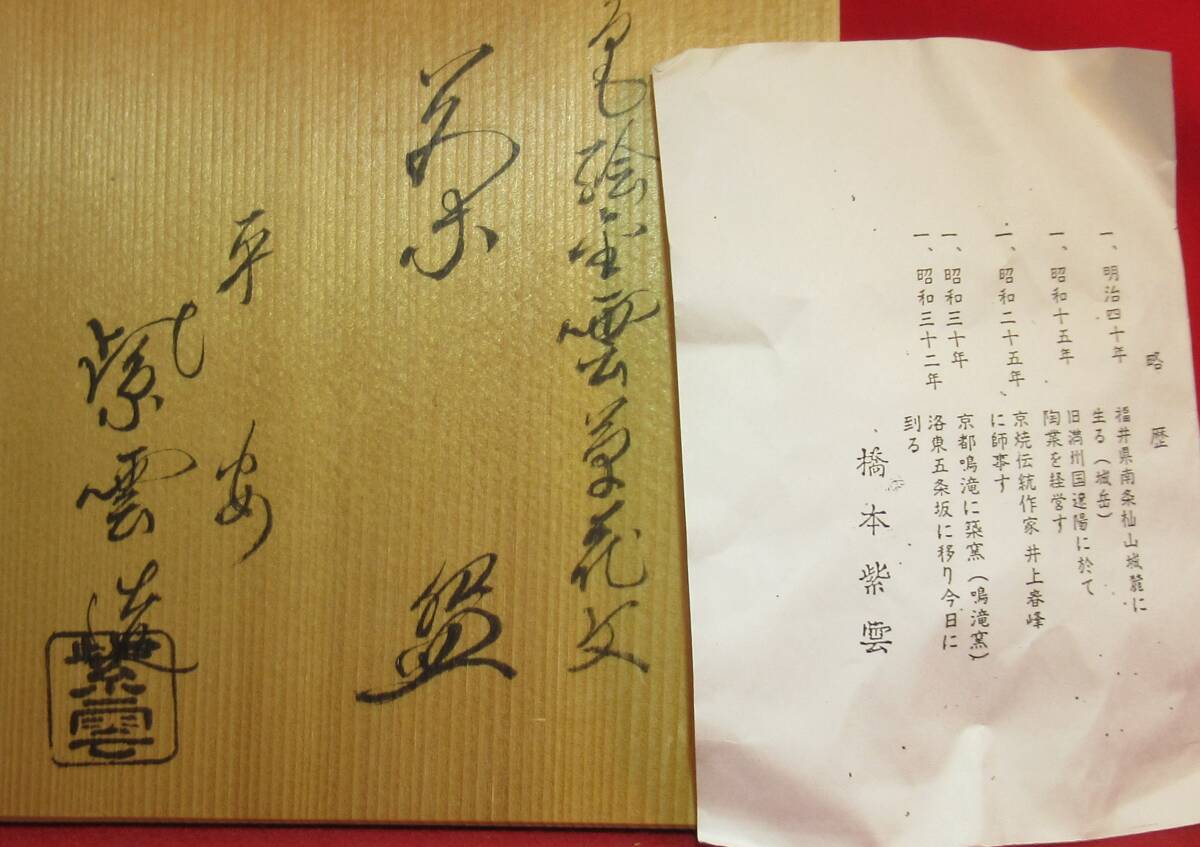 色絵金雲草花文
菓子
盌
平安
紫雲造
紫雲
略歴
一、明治四十年 福井県南条杣山城麓に
生る(城岳)
一、昭和十五年 旧満州国遼陽に於て
陶業を経営す
一、昭和二十五年 京焼伝統作家 井上春峰
に師事す
一、昭和三十年 京都鳴滝に築窯(鳴滝窯)
一、昭和三十二年 洛東五条坂に移り今日に
到る
橋本紫雲